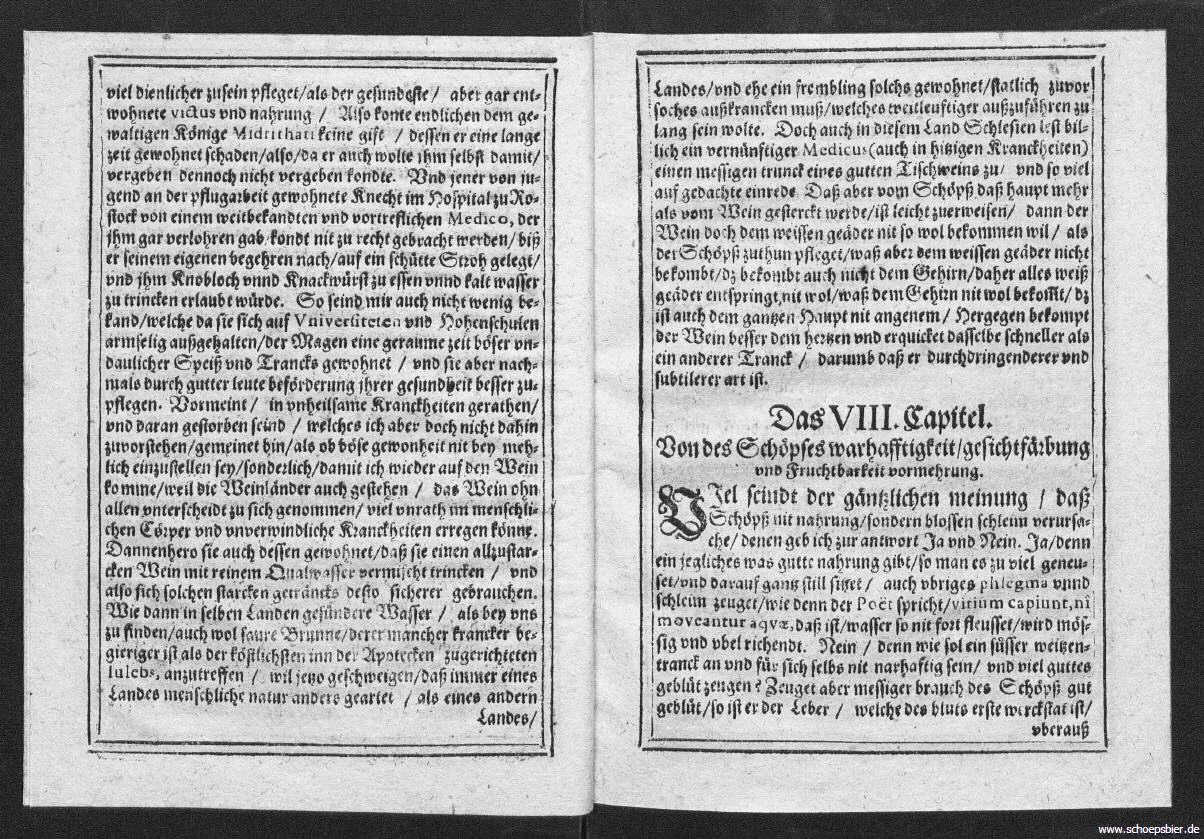 viel dienlicher zusein pfleget/als der gesundeste/ aber gar ent-
wohnete victus vnd nahrung / Also konte endlichen dem ge-
waltigen Könige Midrithati keine gift / dessen er eine lange
zeit gewohnet schaden/also/da er auch wolte jhm selbst damit/
vergeben dennoch nicht vergeben kondte. Vnd jener von ju-
gend an der pflugarbeit gewohnete Knecht im Hospital zu Ro-
stock von einem weitbekandten vnd vortreflichen Medico, der
jhm gar verlohren gab/kondt nit zu recht gebracht werden/biß
er seinem eigenen begehren nach/auf ein schütte Stroh gelegt/
vnd jhm Knobloch vnnd Knackwürst zu essen vnnd kalt wasser
zu trincken erlaubt würde. So seind mir auch nicht wenig be-
kand/welche da sie sich auf Vniversiteten vnd Hohenschulen
armselig außgehalten/der Magen eine geraume zeit böser vn-
daulicher Speiß vnd Trancks gewohnet / vnd sie aber nach-
mals durch gutter leute beförderung jhrer gesundheit besser zu-
pflegen. Vormeint/ in vnheilsame Kranckheiten gerathen/
vnd daran gestorben seind / welches ich aber doch nicht dahin
zuvorstehen/gemeinet bin/als ob böse gewonheit nit bey meh-
lich einzustellen sey/sonderlich/damit ich wieder auf den Wein
komme/weil die Weinländer auch gestehen / das Wein ohn
allen vnterscheidt zu sich genommen/ viel vnrath im menschli-
chen Cörper vnd vnverwindliche Kranckheiten erregen könne.
Dannenhero sie auch dessen gewohnet/daß sie einen allzustar-
cken Wein mit reinem Qualwasser vermischt trincken / vnd
also sich solchen starcken geträncks desto sicherer gebrauchen.
Wie dann in selben Landen gesündere Wasser / als bey vns
zu finden/auch wol saure Brunne/derer mancher krancker be-
gieriger ist als der köstlichsten inn der Apotecken zugerichteten
Iulebs, anzutreffen / wil jetzo geschweigen/daß immer eines
Landes menschliche natur anders geartet / als eines andern
Landes/
Landes/vnd ehe ein frembling solchs gewohnet/statlich zuvor
soches außkrancken muß/welches weitleuftiger außzuführen zu
lang sein wolte. Doch auch in diesem Land Schlesien lest bil-
lich ein vernünftiger Medicus (auch in hitzigen Kranckheiten)
einen messigen trunck eines gutten Tischweins zu/ vnd so viel
auf gedachte einrede. Daß aber vom Schöpß daß haupt mehr
als vom Wein gesterckt werde/ist leicht zuerweisen/ dann der
Wein doch dem weissen geäder nit so wol bekommen wil / als
der Schöpß zuthun pfleget/waß aber dem weissen geäder nicht
bekombt/dz bekombt auch nicht dem Gehirn/daher alles weiß
geäder entspringt,nit wol/waß dem Gehirn nit wol bekom̃t/dz
ist auch dem gantzen Haupt nit angenem / Hergegen bekompt
der Wein besser dem hertzen vnd erquicket dasselbe schneller als
ein anderer Tranck / darumb daß er durchdringenderer vnd
subtilerer art ist.
Das VIII. Capitel.
Von des Schöpses warhafftigkeit/gesichtfärbung
vnd Fruchtbarkeit vormehrung.
VJel seindt der gäntzlichen meinung / daß
Schöpß nit nahrung/sondern blossen schleim verursa-
che/ denen geb ich zur antwort Ja vnd Nein. Ja/denn
ein jegliches was gutte nahrung gibt/so man es zu viel geneu-
set/vnd darauf gantz still sitzet / auch vbriges phlegma vnnd
schleim zeuget/wie denn der Poët spricht/virium capiunt, nî
moveantur aqvæ, daß ist/wasser so nit fort fleusset/wird mös-
sig vnd vbel richendt. Nein / denn wie sol ein süsser weitzen-
tranck an vnd für sich selbs nit narhaftig sein/ vnd viel guttes
geblüt zeugen? Zeuget aber messiger brauch des Schöpß gut
geblüt/so ist er der Leber / welche des bluts erste werckstat ist/
vberauß
www.schoepsbier.de